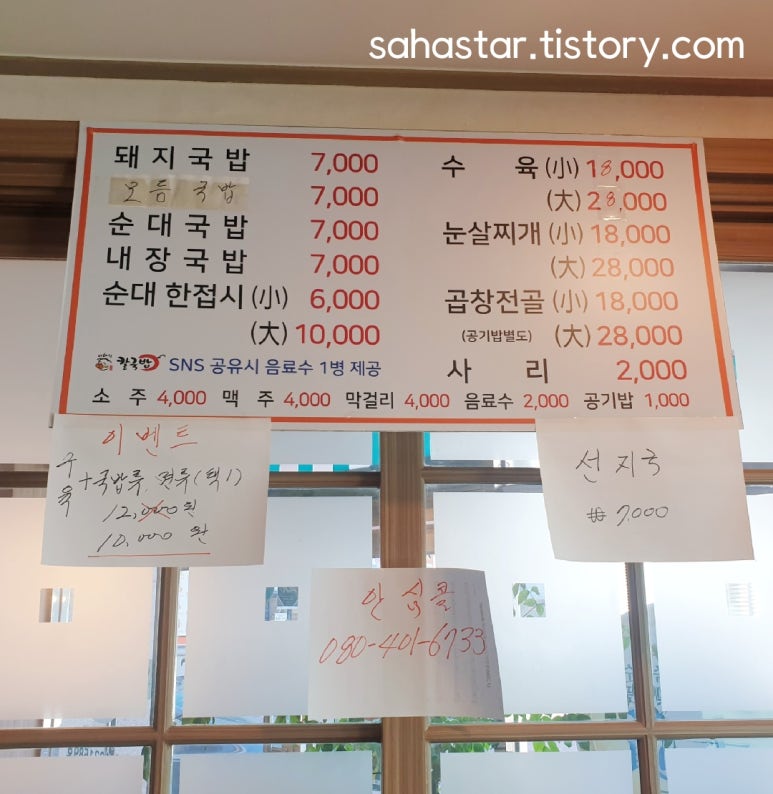 sahastar.tistory.com
돼지국밥 7,000
모듬국밥 7,000
순대국밥 7,000
내장국밥 7,000
순대 한접시 (小) 6,000
(大) 10,000
칼국밥 SNS 공유시 음료수 1병 제공
수육 (小) 18,000
(大) 28,000
눈살찌개 (小) 18,000
(大) 28,000
곱창전골 (小) 18,000
(공기밥별도) (大) 28,000
사리 2,000
소주 4,000 맥주 4,000 막걸리 4,000 음료수 2,000 공기밥 1,000
이벤트
수육 + 국밥류, 면류 (택1)
12,000원
10,000원
선지국
₩ 7,000
안심콜
080-401-6733